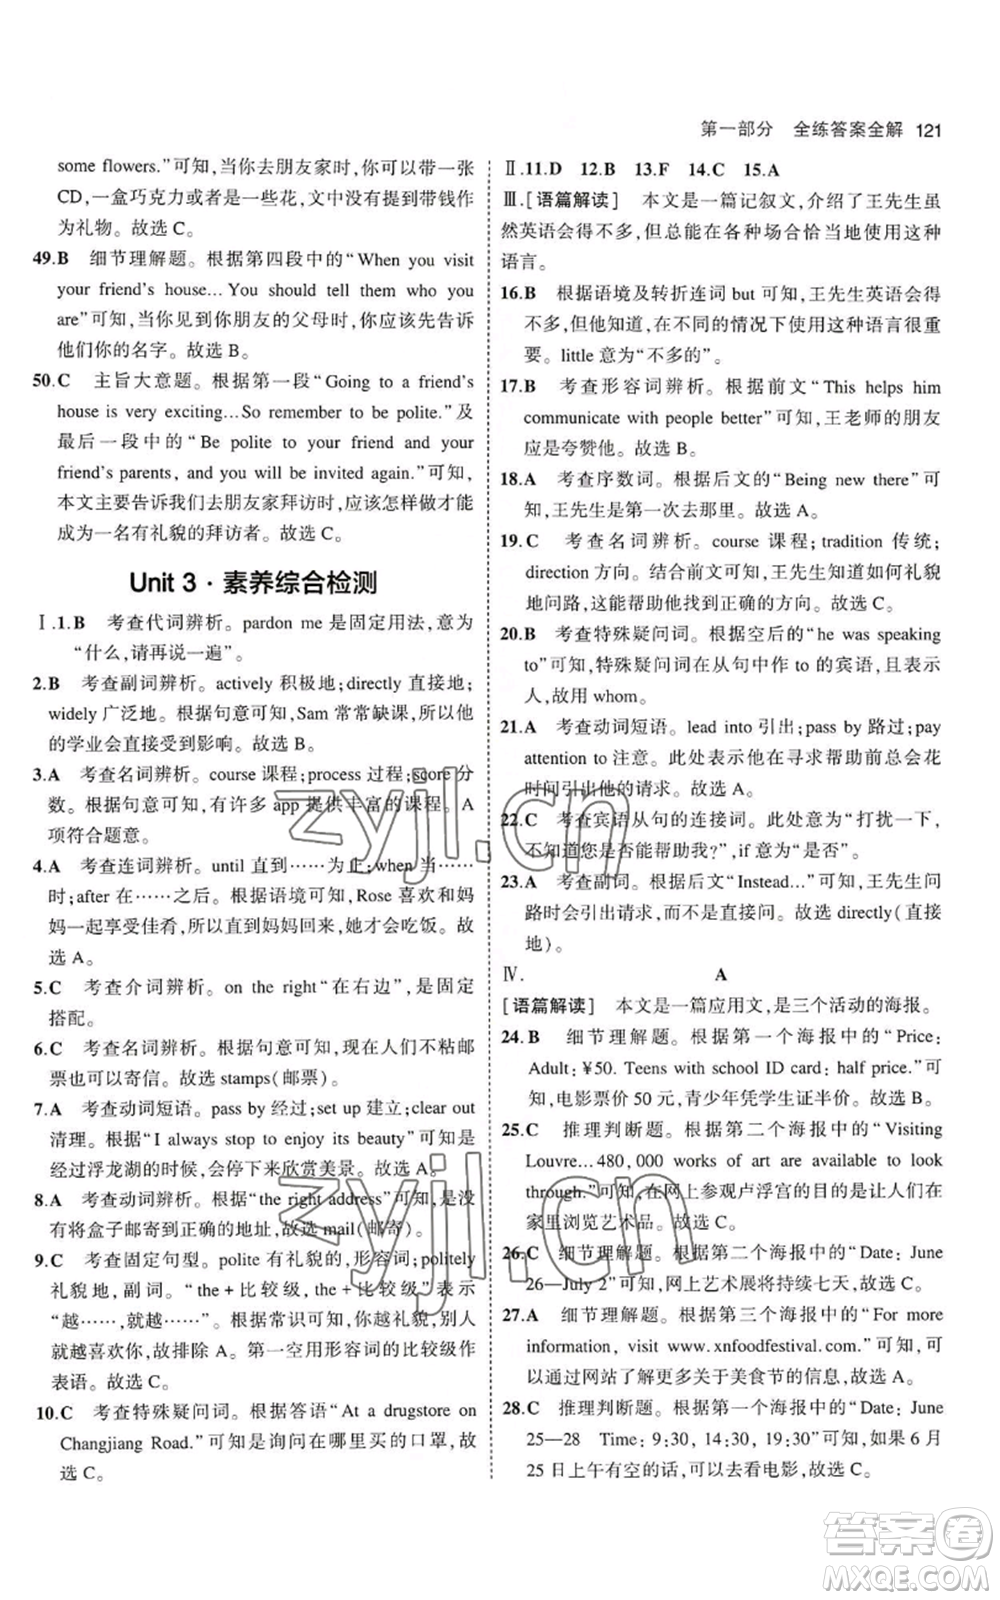 第一部分 全练答案全解 121
some flowers.”可知,当你去朋友家时,你可以带一张
CD,一盒巧克力或者是一些花,文中没有提到带钱作
为礼物。故选 C。
49.B 细节理解题。根据第四段中的“When you visit
your friend's house... You should tell them who you
are”可知,当你见到你朋友的父母时,你应该先告诉
他们你的名字。故选 B。
50.C 主旨大意题。根据第一段“Going to a friend's
house is very exciting...So remember to be polite.”及
最后一段中的“Be polite to your friend and your
friend's parents, and you will be invited again.”可知,
本文主要告诉我们去朋友家拜访时,应该怎样做才能
成为一名有礼貌的拜访者。故选 C。
Unit 3 · 素养综合检测
Ⅰ.1.B 考查代词辨析。pardon me 是固定用法,意为
“什么,请再说一遍”。
2.B 考查副词辨析。actively 积极地;directly 直接地;
widely 广泛地。根据句意可知,Sam 常常缺课,所以他
的学业会直接受到影响。故选 B。
3.A 考查名词辨析。course 课程;process 过程;score 分
数。根据句意可知,有许多 app 提供丰富的课程。A
项符合题意。
4.A 考查连词辨析。until 直到……为止;when 当……
时;after 在……之后。根据语境可知,Rose 喜欢和妈
妈一起享受佳肴,所以直到妈妈回来,她才会吃饭。故
选 A。
5.C 考查介词辨析。on the right“在右边”,是固定
搭配。
6.C 考查名词辨析。根据句意可知,现在人们不粘邮
票也可以寄信。故选 stamps(邮票)。
7.A 考查动词短语。pass by 经过;set up 建立;clear out
清理。根据“I always stop to enjoy its beauty”可知是
经过浮龙湖的时候,会停下来欣赏美景。故选 A。
8.A 考查动词辨析。根据“the right address”可知,是没
有将盒子邮寄到正确的地址,故选 mail(邮寄)。
9.C 考查固定句型。polite 有礼貌的,形容词;politely
礼貌地,副词。“the+比较级,the+比较级”表示
“越……,就越……”。根据常识可知,你越礼貌,别人
就越喜欢你,故排除 A。第一空用形容词的比较级作
表语。故选 C。
10.C 考查特殊疑问词。根据答语“At a drugstore on
Changjiang Road.”可知是询问在哪里买的口罩,故
选 C。
Ⅱ.11.D 12.B 13.F 14.C 15.A
Ⅲ.[语篇解读] 本文是一篇记叙文,介绍了王先生虽
然英语会得不多,但却能在各种场合恰当地使用这种
语言。
16.B 根据语境及转折连词 but 可知,王先生英语会得
不多,但他知道,在不同的情况下使用这种语言很重
要。little 意为“不多的”。
17.B 考查形容词辨析。根据前文“This helps him
communicate with people better”可知,王老师的朋友
应是夸赞他。故选 B。
18.A 考查序数词。根据后文的“Being new there”可
知,王先生是第一次去那里。故选 A。
19.C 考查名词辨析。course 课程;tradition 传统;
direction 方向。结合前文可知,王先生知道如何礼貌
地问路,这能帮助他找到正确的方向。故选 C。
20.B 考查特殊疑问词。根据空后的“he was speaking
to”可知,特殊疑问词在从句中作 to 的宾语,且表示
人,故用 whom。
21.A 考查动词短语。lead into 引出;pass by 路过;pay
attention to 注意。此处表示他在寻求帮助前总会花
时间引出他的请求。故选 A。
22.C 考查宾语从句的连接词。此处意为“打扰一下,
不知道您是否能帮助我?”,if 意为“是否”。
23.A 考查副词。根据后文“Instead...”可知,王先生问
路时会引出请求,而不是直接问。故选 directly(直接
地)。
Ⅳ. A
[语篇解读] 本文是一篇应用文,是三个活动的海报。
24.B 细节理解题。根据第一个海报中的“Price:
Adult:¥50. Teens with school ID card: half price.”可
知,电影票价 50 元,青少年凭学生证半价。故选 B。
25.C 推理判断题。根据第二个海报中的“Visiting
Louvre...480,000 works of art are available to look
through.”可知,在网上参观卢浮宫的目的是让人们在
家里浏览艺术品。故选 C。
26.C 细节理解题。根据第二个海报中的“Date: June
26—July 2”可知,网上艺术展将持续七天,故选 C。
27.A 细节理解题。根据第三个海报中的“For more
information, visit www.xnfoodfestival.com.”可知,可
以通过网站了解更多关于美食节的信息,故选 A。
28.C 推理判断题。根据第一个海报中的“Date: June
25—28 Time: 9:30, 14:30, 19:30”可知,如果 6 月
25 日上午有空的话,可以去看电影,故选 C。
zyjl.cn
zyjl.cn
答案圈
MXQE.COM